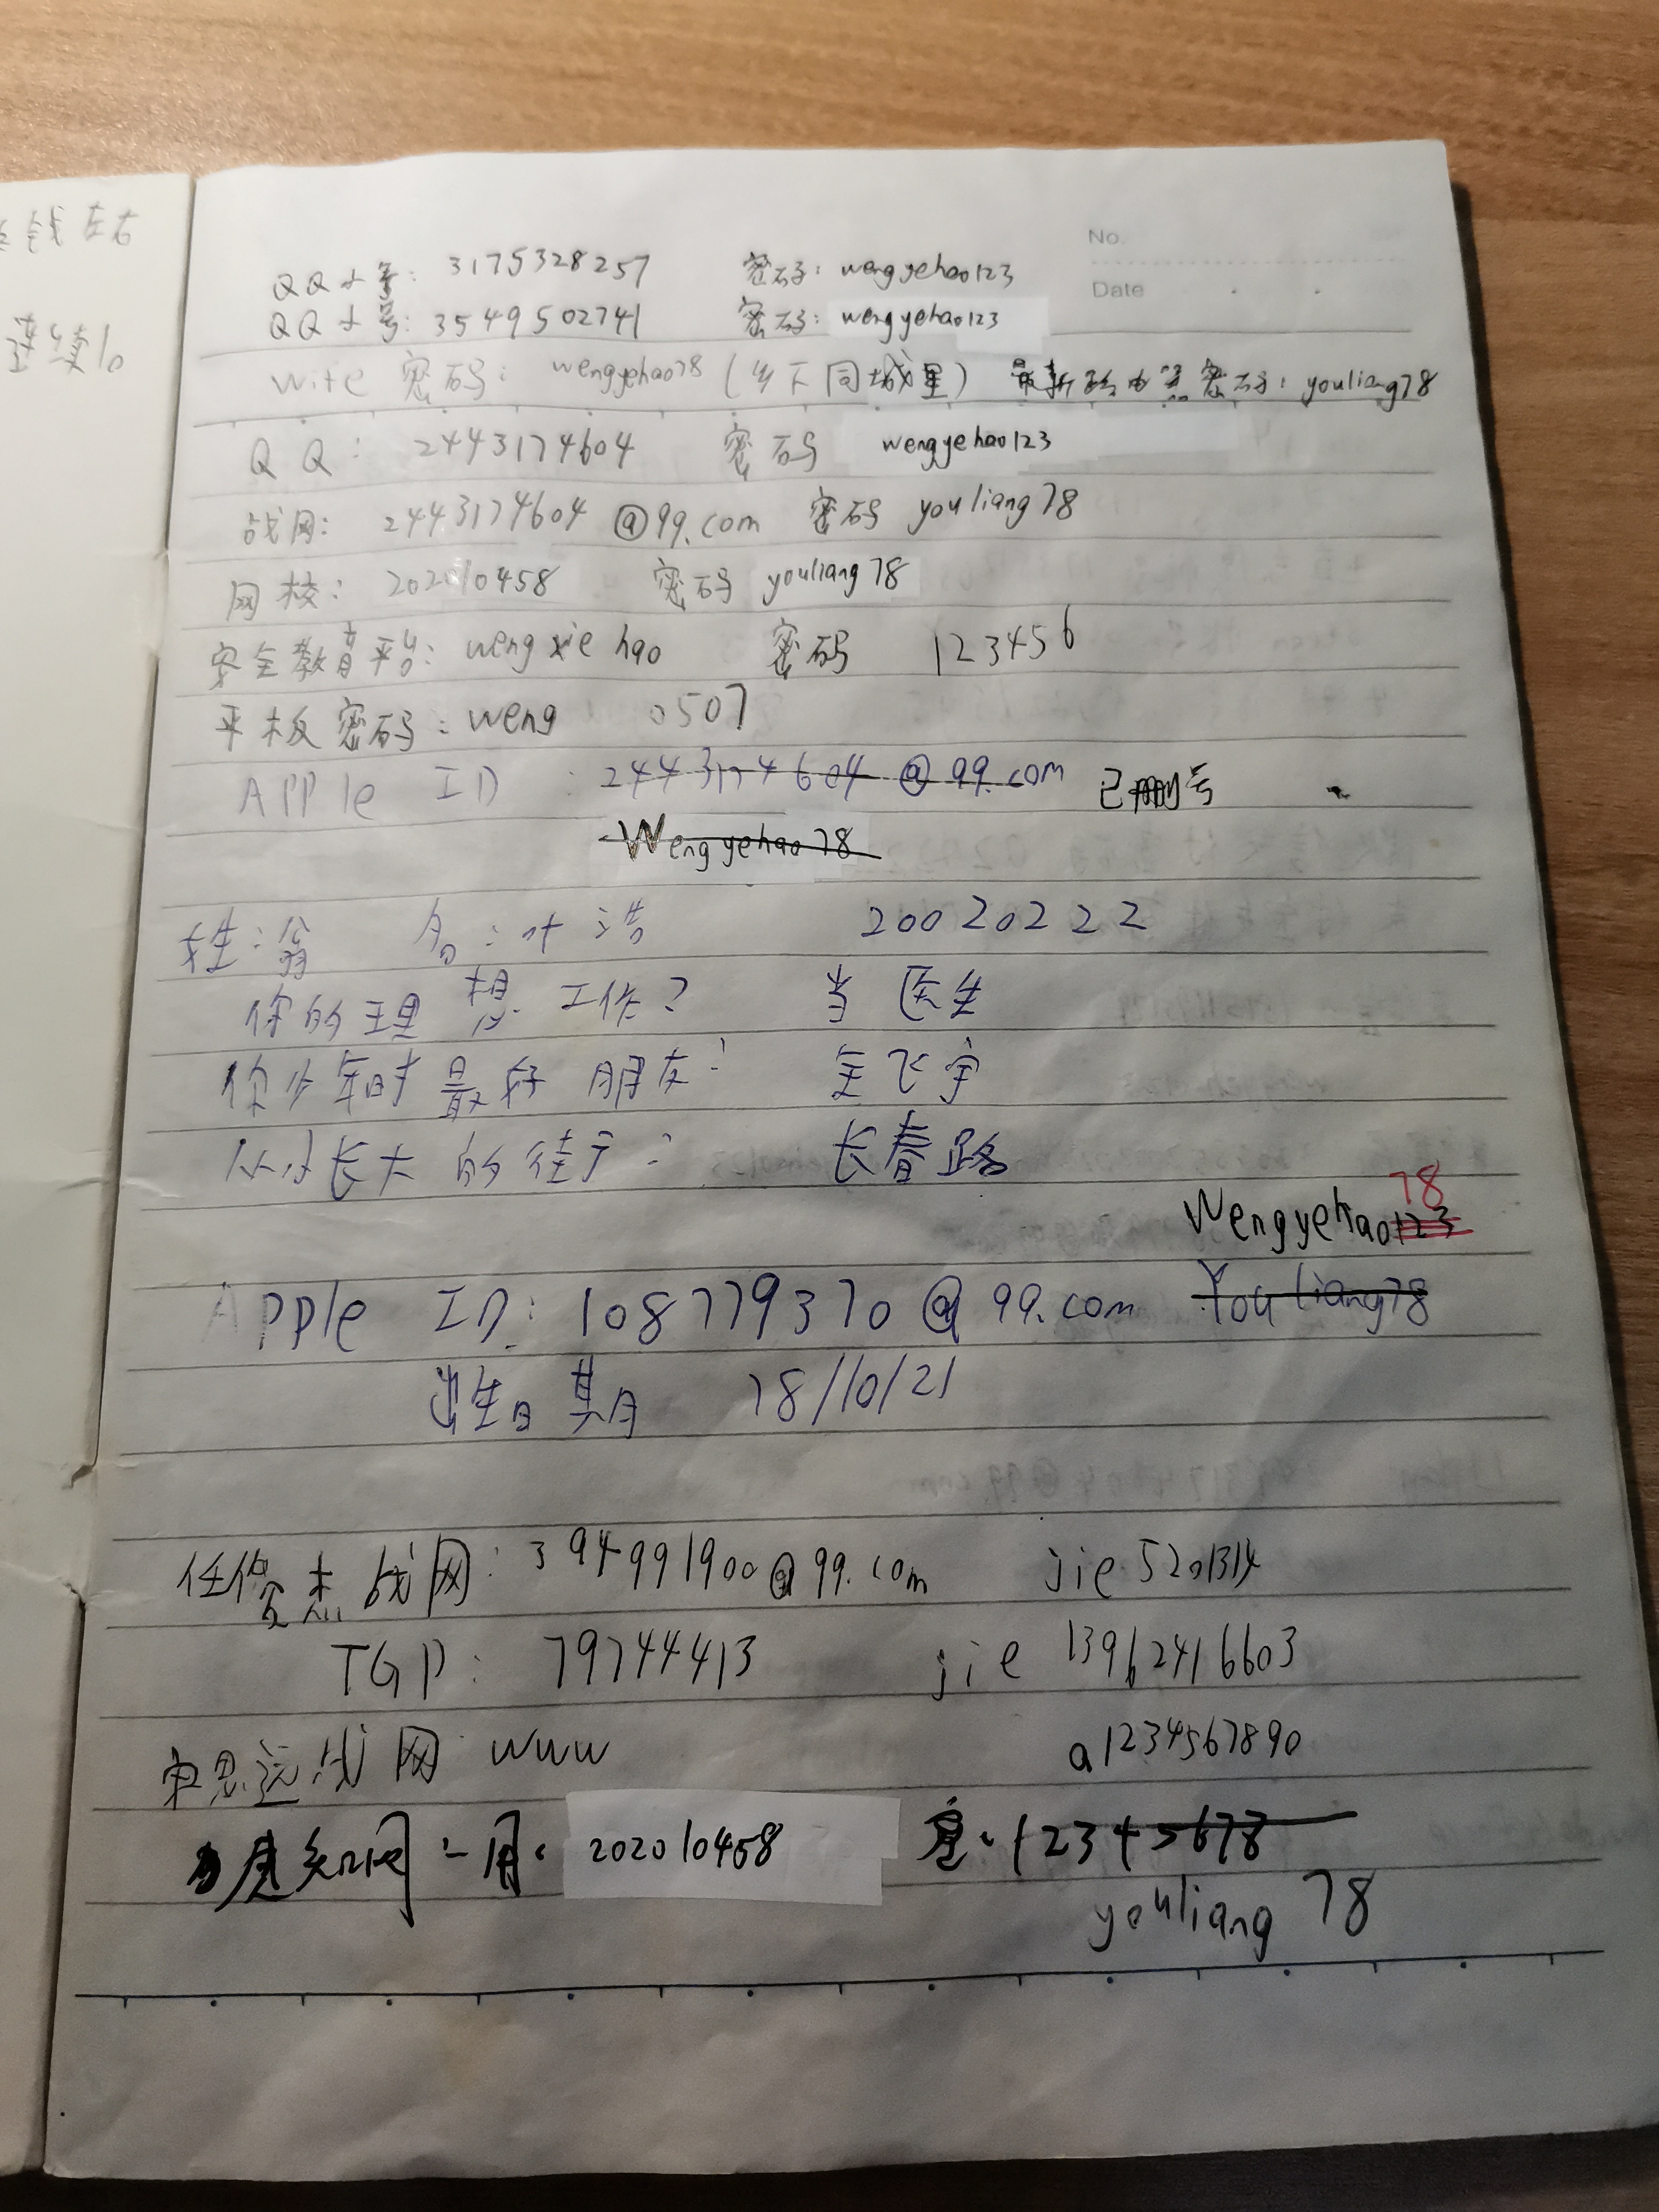 QQ小号：3175328257 密码：wengyehao123
No.
QQ小号：3549502741 密码：wengyehao123
Date
wife 密码：wengyehao78（乡下同城里）最新路由器密码：youliang78
QQ：2443174604 密码 wengyehao123
战网：2443174604@qq.com 密码 youliang78
网校：202010458 密码 youliang78
安全教育平台：wengxiehao 密码 123456
平板密码：weng 0507
APPle ID：2443174604@qq.com 已删号
Wengyehao78
姓：翁 名：叶浩 20020222
你的理想工作？ 当医生
你少年时最好朋友： 王飞宇
从小长大的街 ： 长春路
Wengyehao123 78
APPle ID：108779370@qq.com Youliang78
出生日期 78/10/21
任俊杰战网：394991900@qq.com jie5201314
TGP：79744413 jie 13962416603
宋思远战网 www a1234567890
202010458 密：12345678
youliang78
钱左右